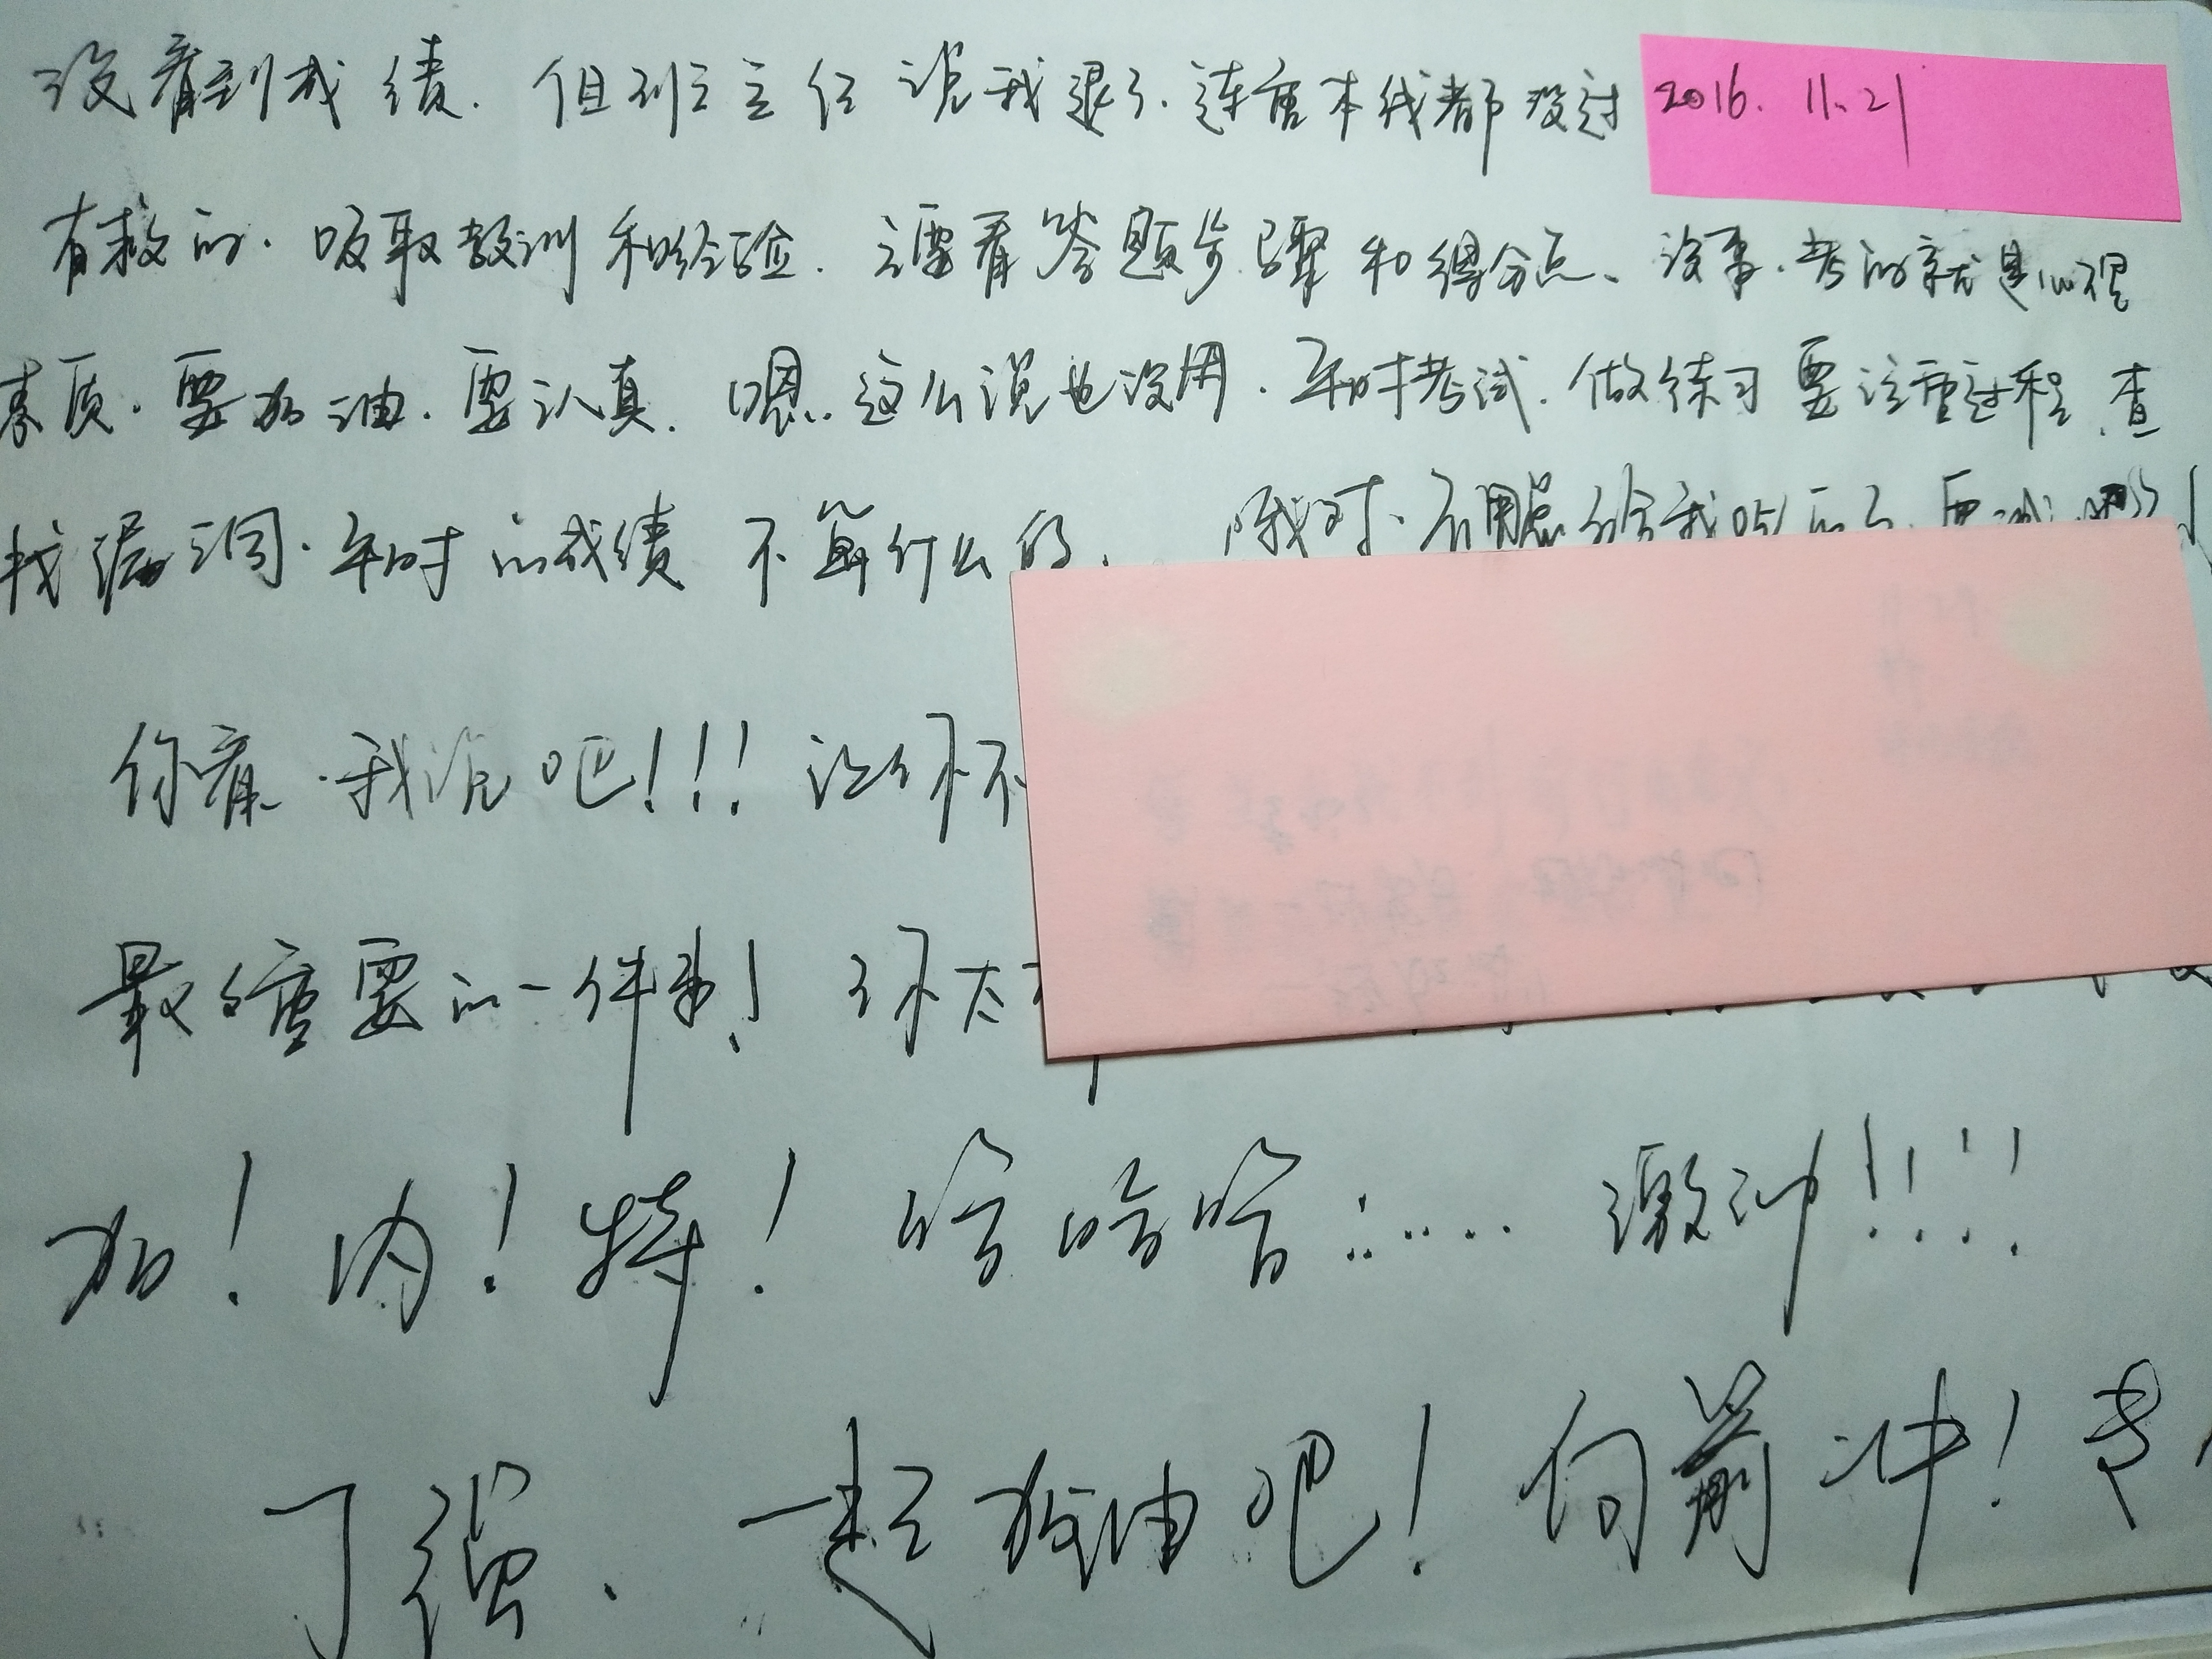 没看到成绩. 但班主任说我退了. 连重本线都没过 2016. 11. 21
有救的. 吸取教训和经验. 主要看答题步骤和得分点、没事. 考的就是心理
素质. 要加油. 要认真. 嗯.. 这么说也没用. 平时考试. 做练习要注重过程. 查
找漏洞. 平时的成绩不算什么的. 哦对. 不用总给我吃的了.
你看. 我说吧!!! 让你不
最重要的一件事! 你太
加! 内! 特! 哈哈哈...... 激动!!!!
了强. 一起加油吧! 向前冲! 考